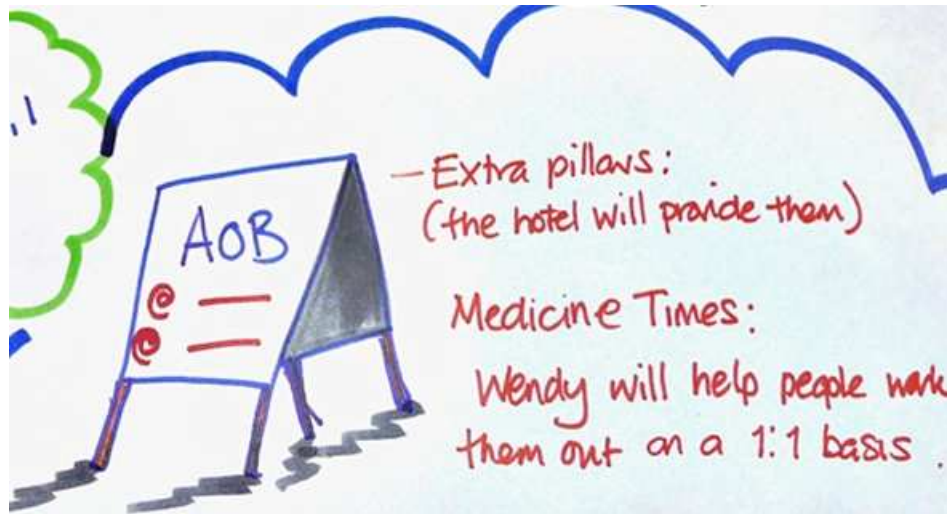 AOB
— Extra pillows:
(the hotel will provide them)
Medicine Times:
Wendy will help people work
them out on a 1:1 basis.